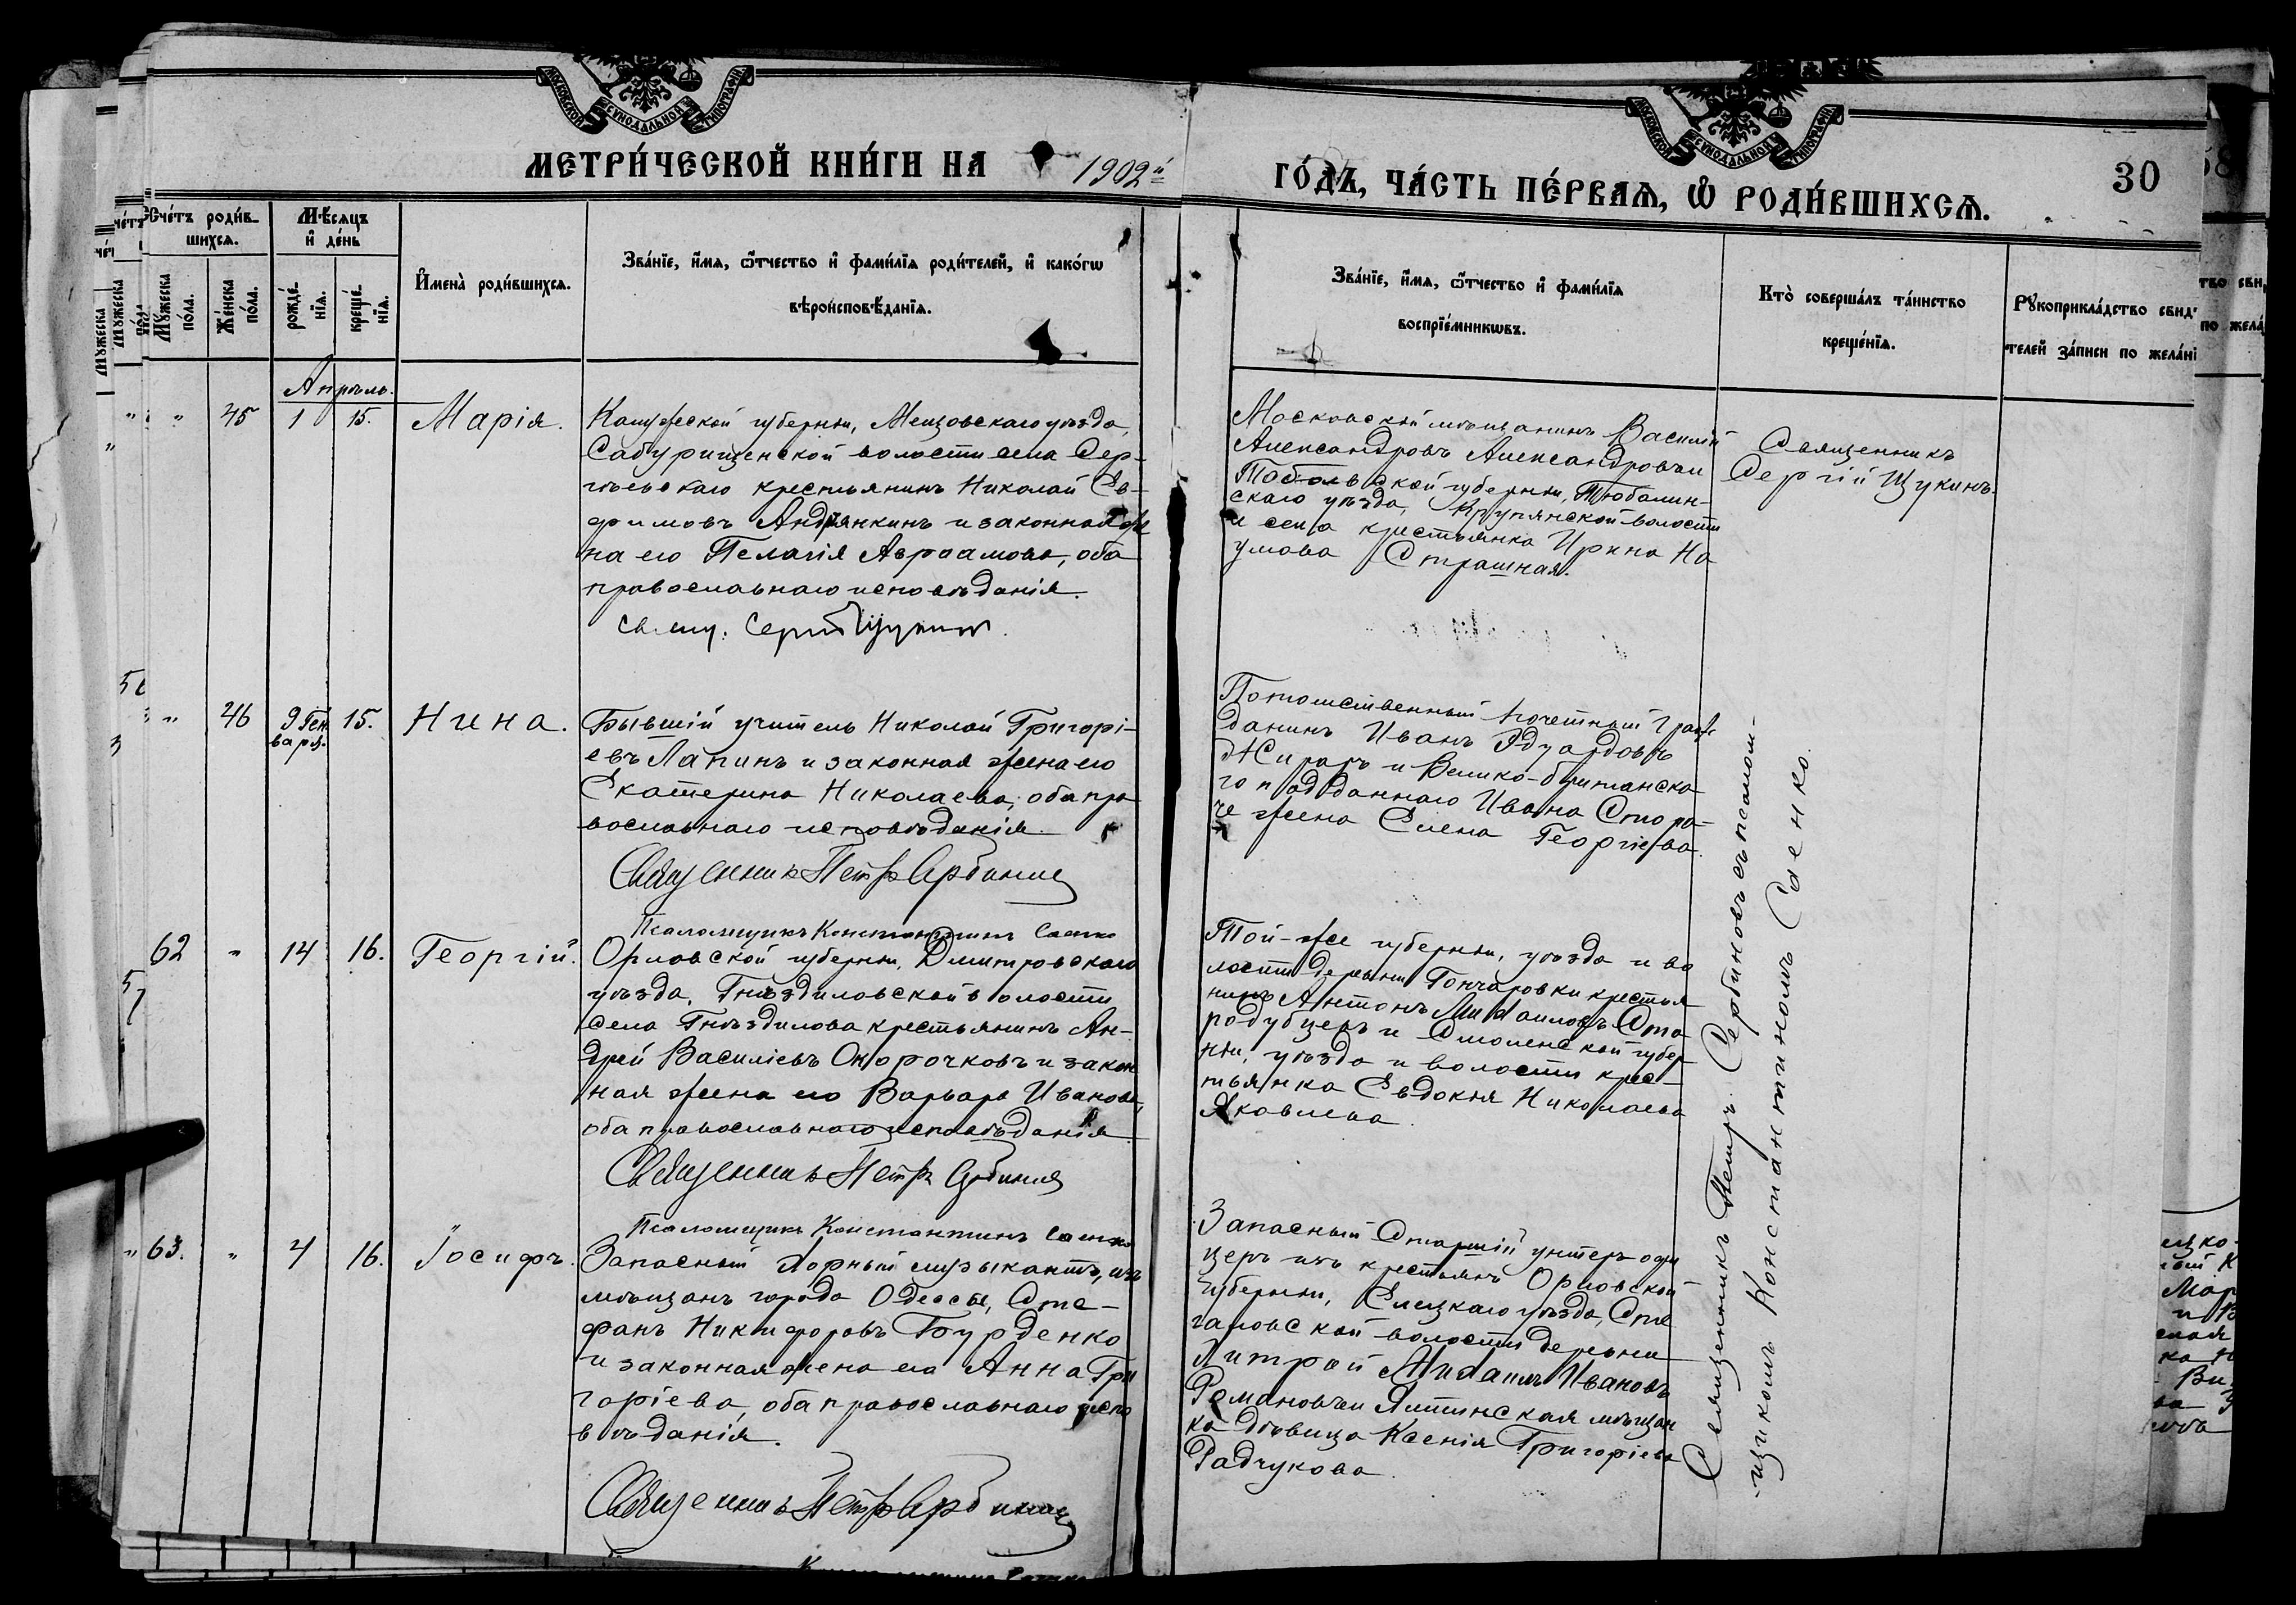 МЕТРИ́ЧЕСКОЙ КНИ́ГИ НА 1902й
ГО́ДЪ, ЧА́СТЬ ПЕ́РВАЯ, Ѿ РОДИ́ВШИХСЯ.
30
Счéтъ роди́в-
шихся.
Мѣ́сяцъ
и҆ де́нь
Мꙋ́жеска
по́ла.
Же́нска
по́ла.
рожде́-
нїя.
креще́-
нїя.
И҆мена̀ роди́вшихся.
Зва́нїе, и҆́мя, ѻ҆́тчество и҆ фами́лїя роди́телей, и҆ како́гѡ
вѣроисповѣ́данїя.
Зва́нїе, и҆́мя, ѻ҆́тчество и҆ фами́лїя
воспрїе́мникѡвъ.
Кто̀ соверша́лъ та́инство
креще́нїя.
Рꙋкоприкла́дство свид
телей за́писи по жела́нї
Апрѣль.
" 45 1 15. Марія.
Калужской губерніи, Мещовскаго уѣзда,
Сабурищенской волости села Сер-
гіевскаго крестьянинъ Николай Ев-
фимовъ Андріянкинъ и законная же
на его Пелагія Авраамова, оба
православнаго исповѣданія.
Свящ. Сергій Щукинъ.
Московскій мѣщанинъ Василій
Александровъ Александровъ и
Тобольской губерніи, Тюкалин-
скаго уѣзда, Крупянской волости
и села крестьянка Ирина На
умова Страшная.
Священникъ
Сергій Щукинъ.
" 46 9 Ген 15. Нина.
варя.
Бывшій учитель Николай Григорі-
евъ Лапинъ и законная жена его
Екатерина Николаева, оба пра
вославнаго исповѣданія.
Священникъ Петръ Сербиновъ
Псаломщикъ Константинъ Саенко
Потомственный почетный граж
данинъ Иванъ Эдуардовъ
Жираръ и Велико-британска
го подданнаго Ивана Стора-
че жена Елена Георгіева.
62 " 14 16. Георгій.
Орловской губерніи, Дмитровскаго
уѣзда, Гнѣздиловской волости
села Гнѣздилова крестьянинъ Ан-
дрей Василіевъ Окорочковъ и закон
ная жена его Варвара Иванова,
оба православнаго исповѣданія
Священникъ Петръ Сербиновъ
Псаломщикъ Константинъ Саенко
Той-же губерніи, уѣзда и во
лости деревни Гончаровки крестья
нинъ Антонъ Михаиловъ Ста-
родубцевъ и Смоленской губер
ніи, уѣзда и волости крес-
тьянка Евдокія Николаева
Яковлева.
" 63. " 4 16. Іосифъ.
Запасный Хорный музыкантъ, изъ
мѣщанъ города Одессы, Сте-
фанъ Никифоровъ Бурденко
и законная жена его Анна Гри
горіева, оба православнаго испо
вѣданія.
Священникъ Петръ Сербиновъ
Запасный Старшій унтеръ офи
церъ изъ крестьянъ Орловской
губерніи, Елецкаго уѣзда, Сте
галовской волости деревни
Хитрой Михаилъ Ивановъ
Романовъ и Ялтинская мѣщан
ка дѣвица Ксенія Григоріева
Радчукова.
Священникъ Петръ Сербиновъ съ псалом-
щикомъ Константиномъ Саенко.